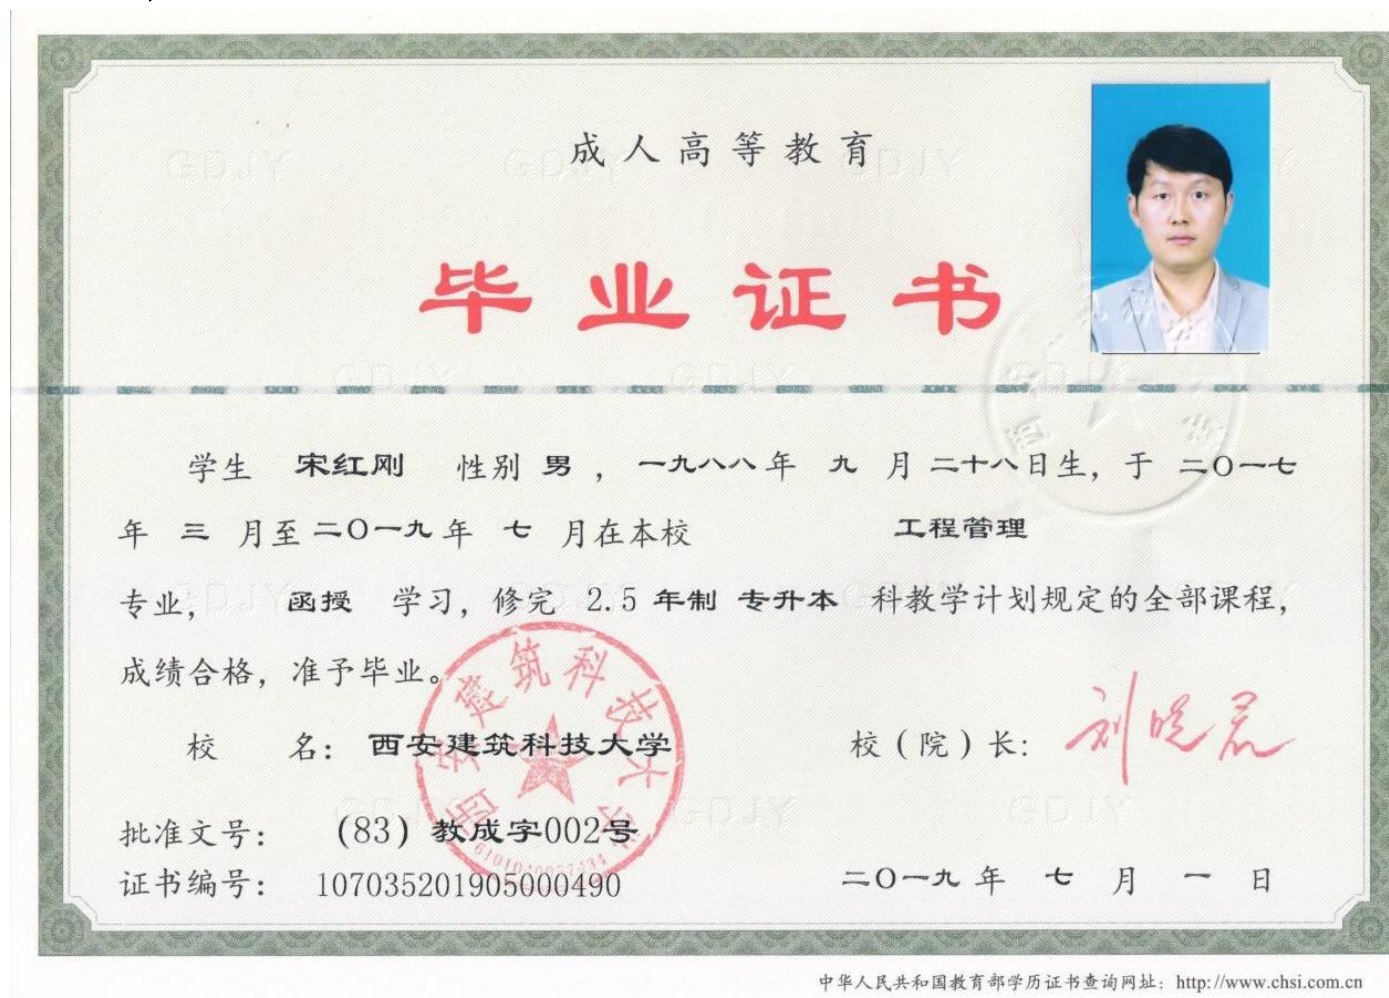 成人高等教育
毕业证书
学生 宋红刚 性别 男 ，一九八八年 九 月 二十八日生，于 二〇一七
年 三 月至 二〇一九 年 七 月在本校 工程管理
专业， 函授 学习，修完 2.5 年制 专升本 科教学计划规定的全部课程，
成绩合格，准予毕业。
西安建筑科技大学
校 名：西安建筑科技大学 校（院）长：刘晓君
批准文号： (83)教成字002号
证书编号： 107035201905000490 二〇一九 年 七 月 一 日
中华人民共和国教育部学历证书查询网址：http://www.chsi.com.cn
GDJY